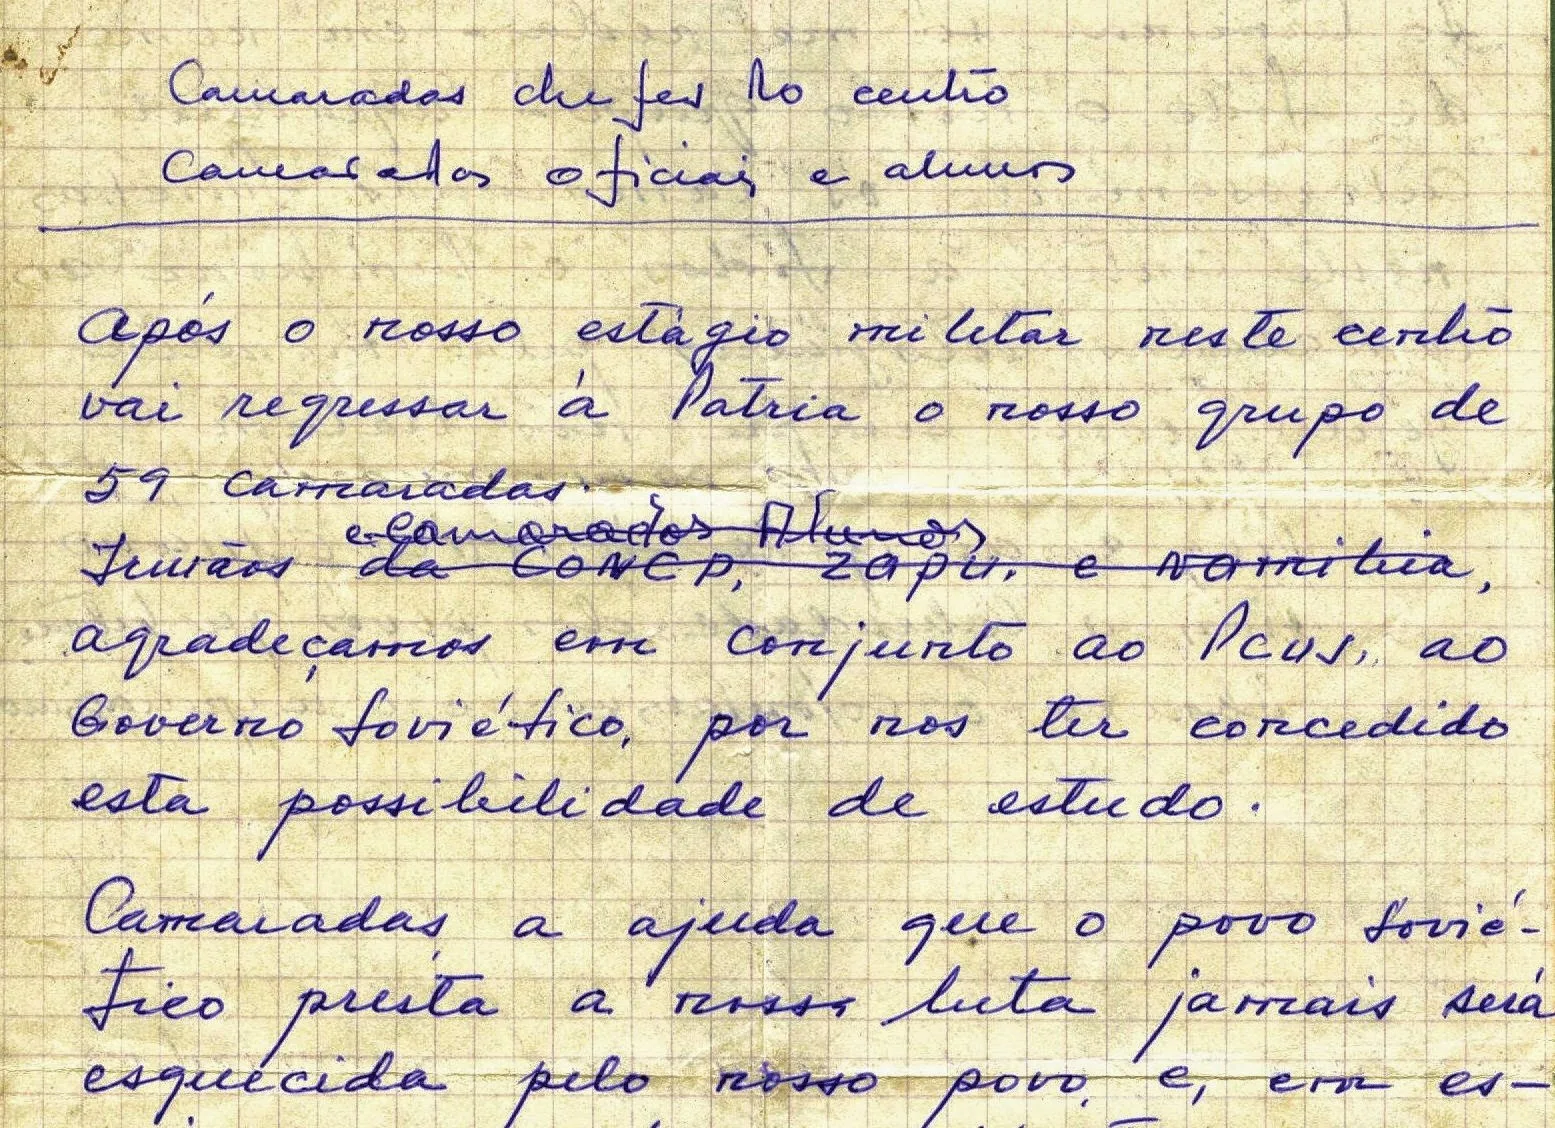 Camaradas chefes do centro
Camaradas oficiais e alunos
Após o nosso estágio militar neste centro
vai regressar à Patria o nosso grupo de
59 camaradas.
e Camarados Alunos
Irmãos da CONCP, ZAPU. e Namibia,
agradeçamos em conjunto ao PCUS, ao
Governo Soviético, por nos ter concedido
esta possibilidade de estudo.
Camaradas, a ajuda que o povo Sovié-
tico presta a nossa luta jamais será
esquecida pelo nosso povo, e, em es-